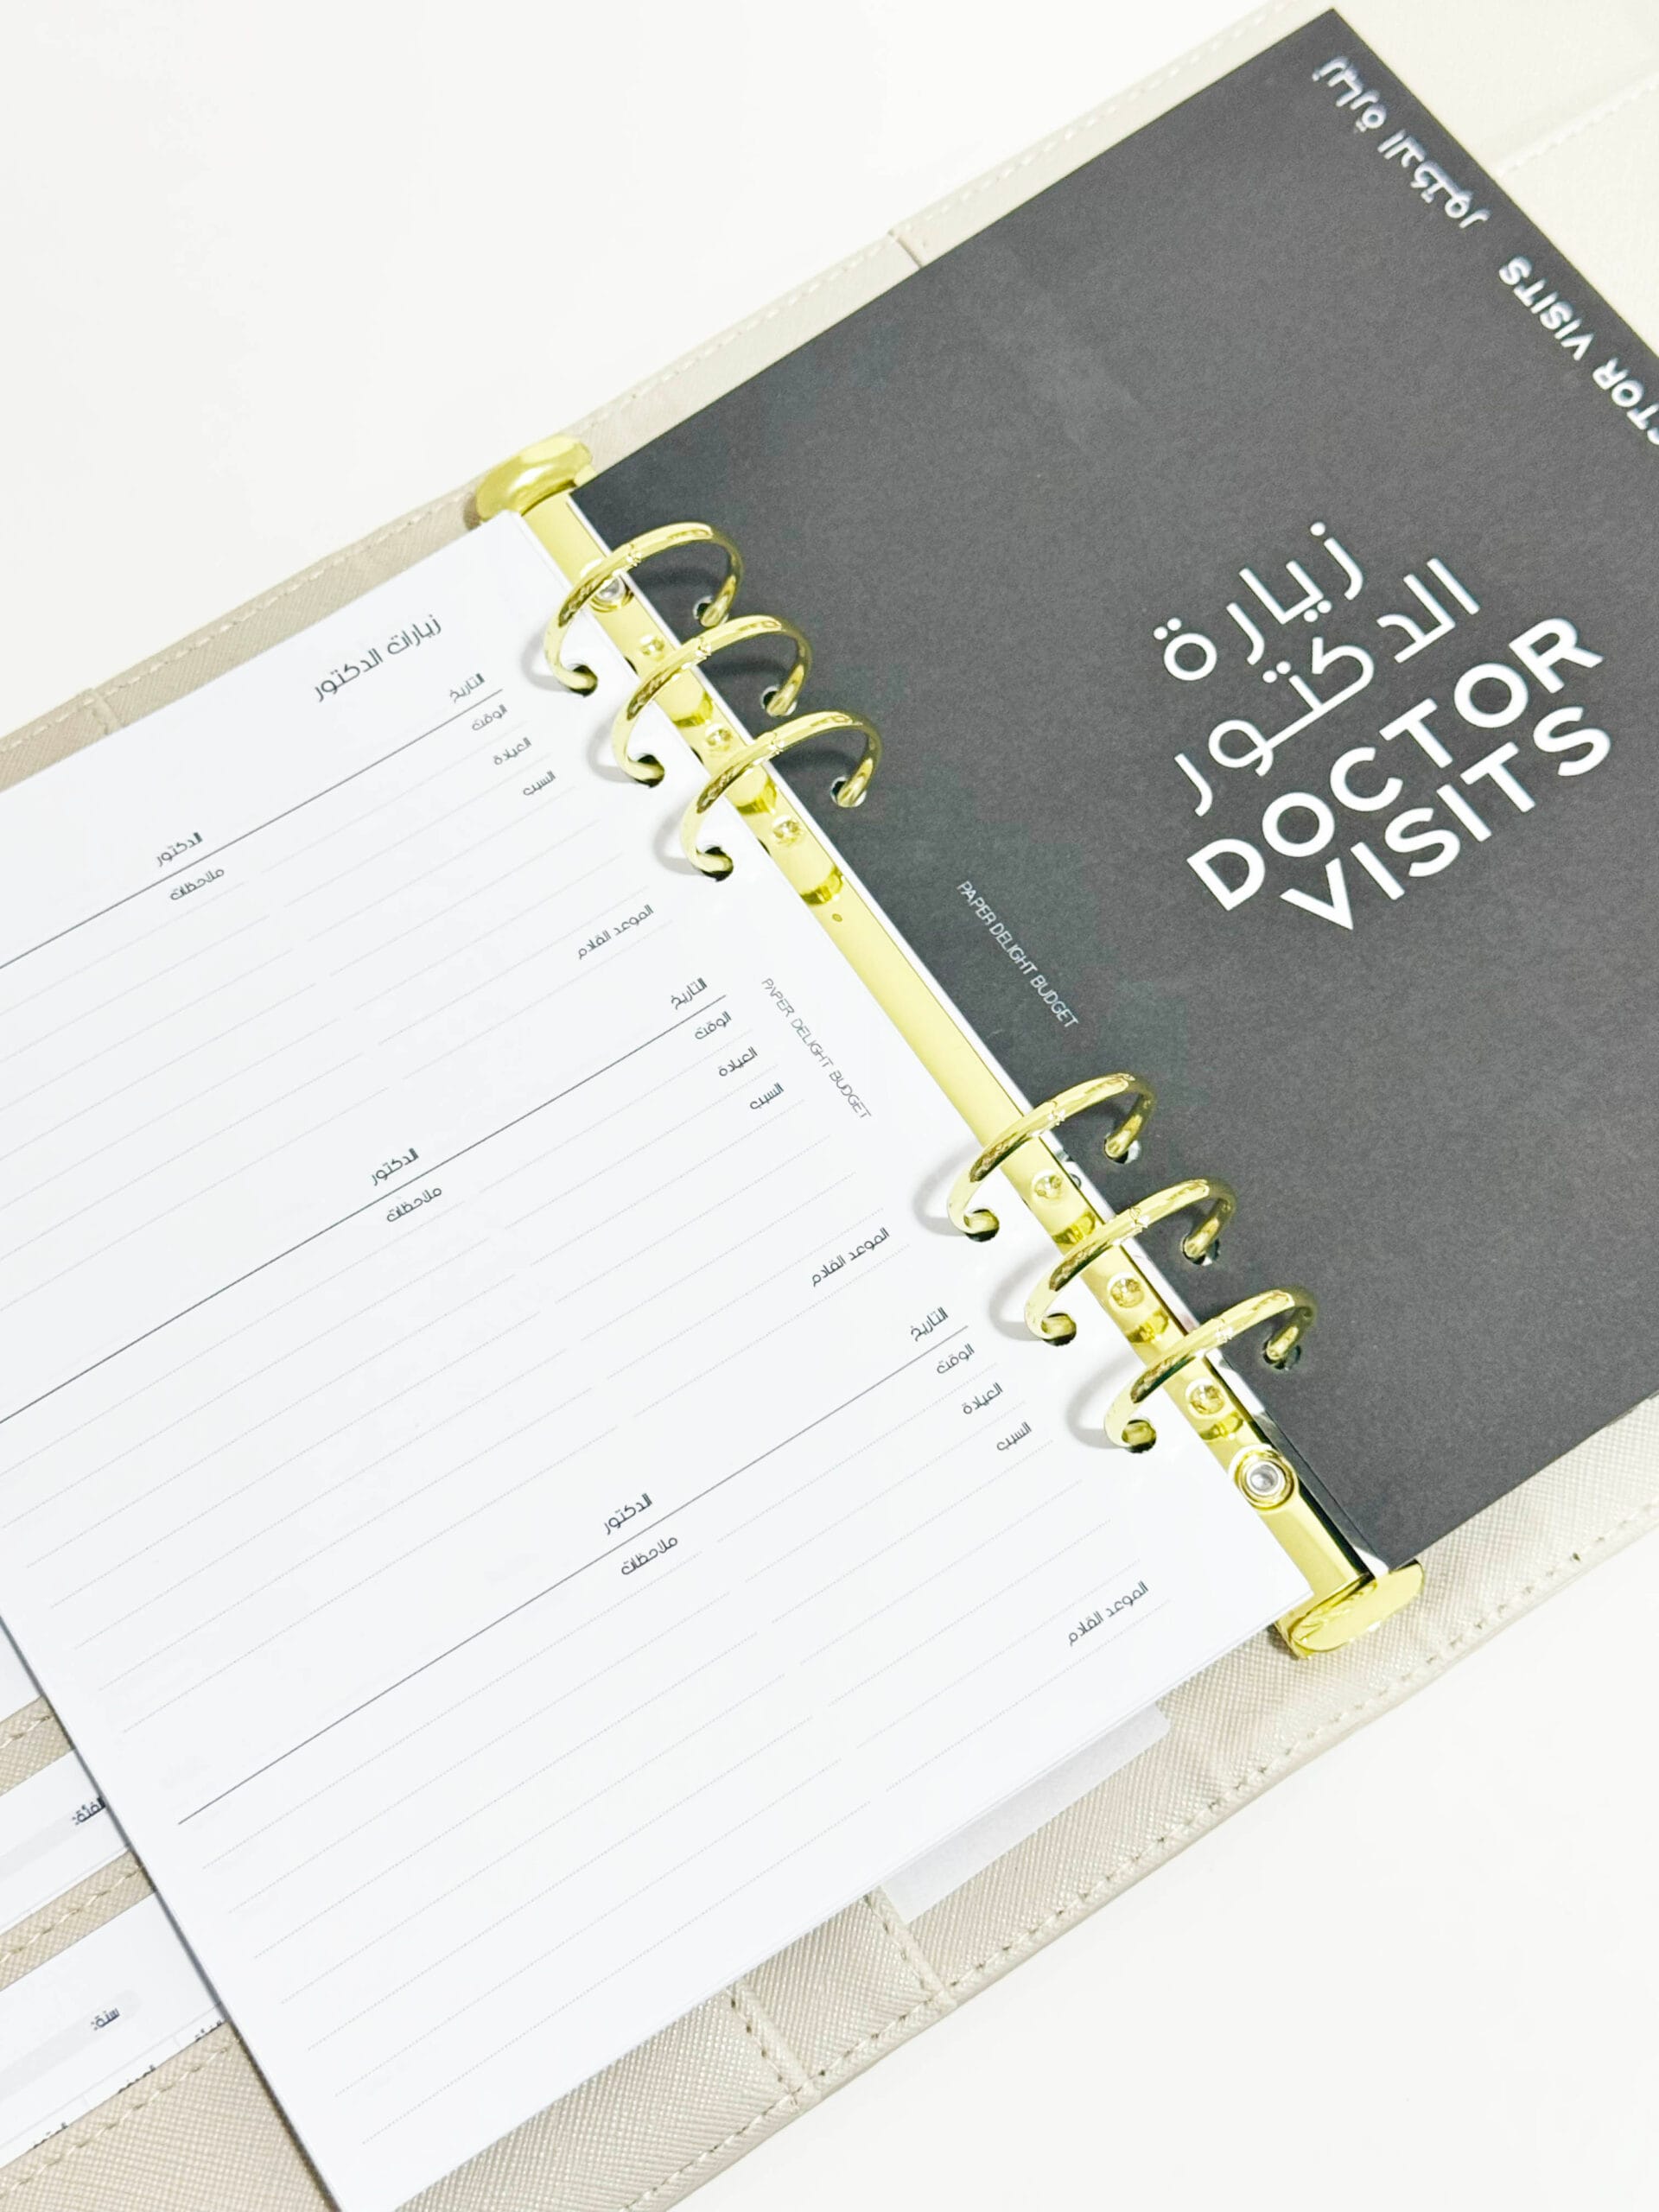 زيارة الدكتور DOCTOR VISITS
زيارة
الدكتور
DOCTOR
VISITS
PAPER DELIGHT BUDGET
زيارات الدكتور
التاريخ
الدكتور
الوقت
ملاحظات
العيادة
السبب
الموعد القادم
التاريخ
الدكتور
الوقت
ملاحظات
العيادة
السبب
الموعد القادم
التاريخ
الدكتور
الوقت
ملاحظات
العيادة
السبب
الموعد القادم
PAPER DELIGHT BUDGET
الفئة:
سنة: